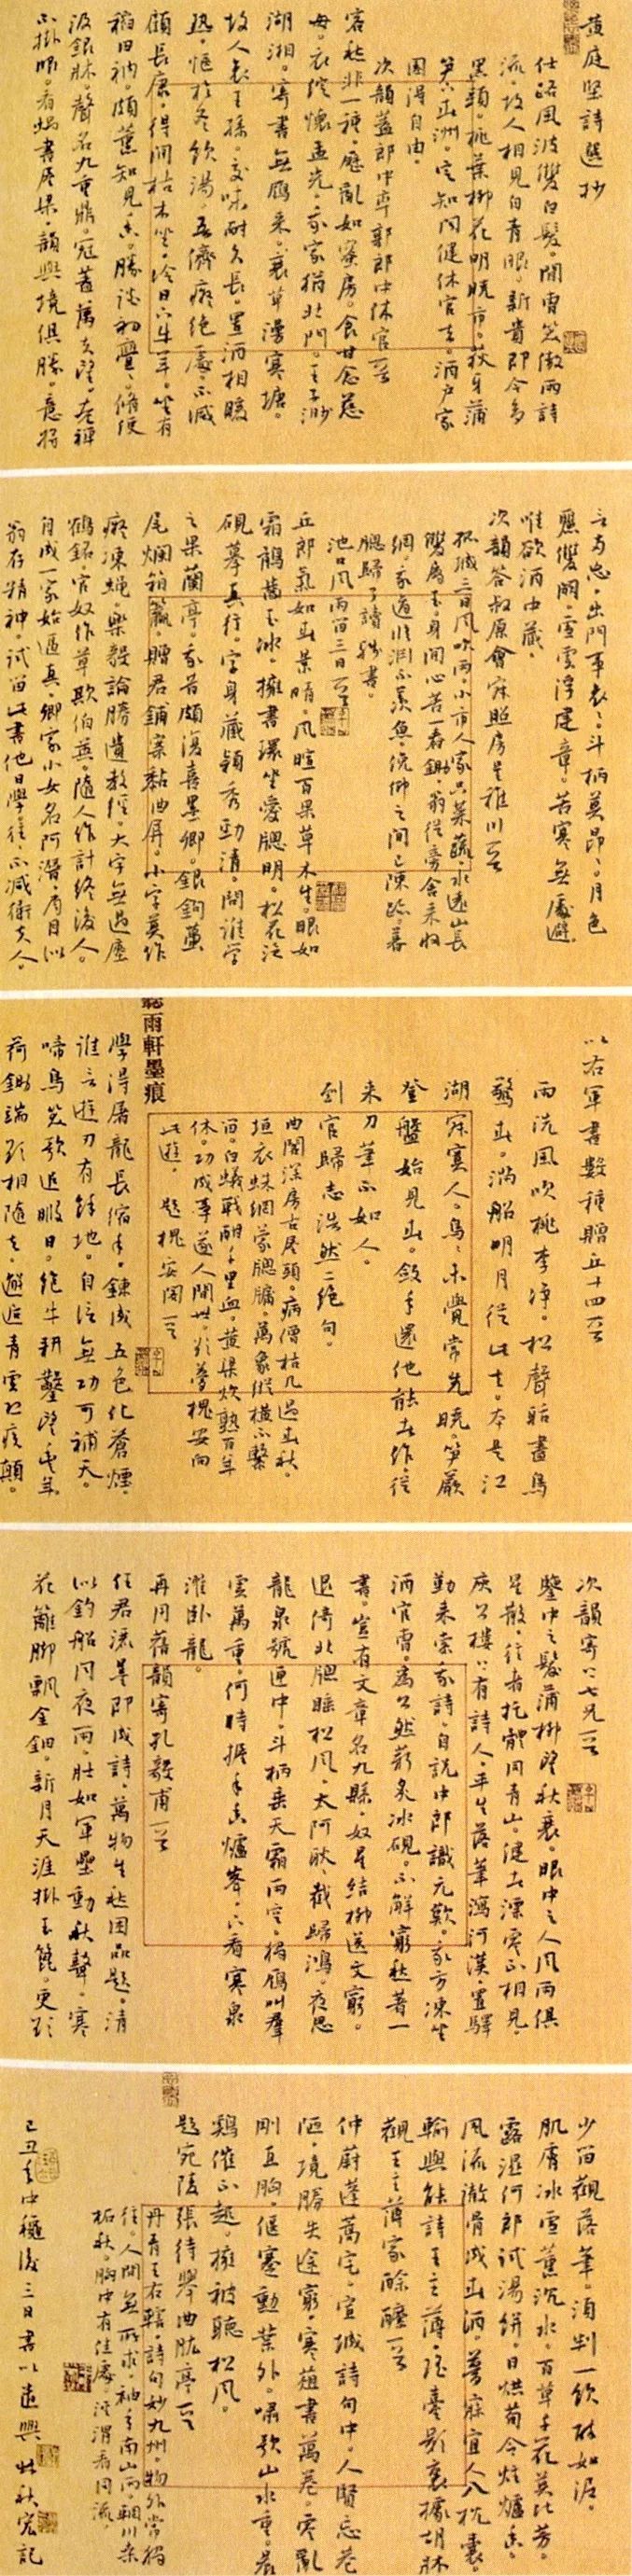 黄庭堅詩選抄
仕路風波雙白髮。閒曹笑傲兩詩
流。故人相見自青眼。新貴即今多
黑頭。桃葉柳花明曉市。荻牙蒲
笋上春洲。定知聞健休官去。酒户家
園得自由。
次韻蓋郎中率郭郎中休官一首
客愁非一種。歷亂如蜜房。食甘念慈
母。衣綻懷孟光。我家猶北門。王子渺
湖湘。寄書無雁來。衰草漫寒塘。
故人衣王孫。交味耐久長。置酒相暖
熱。愜於冬飲湯。吾儕癡絶處。不減
顧長康。得閒枯木坐。冷日下牛羊。坐有
稻田衲。頗薰知見香。勝談初亹亹。脩綆
汲銀牀。聲名九鼎重。冠蓋萬夫望。老禪
不掛眼。看蝸書屋梁。韻與境俱勝。意將
言兩忘。出門事衮衮。斗柄莫昂昂。月色
麗雙闕。雪雲浮建章。苦寒無處避。
唯欲酒中藏。
次韻答叔原會寂照房呈稚川一首
孤城三日風吹雨。小市人家只菜蔬。水遠山長
雙屬玉。身閒心苦一舂鋤。翁從旁舍來收
網。我適臨淵不羨魚。俛仰之間已陳跡。暮
窗歸了讀殘書。
池口風雨留三日一首
丘郎氣如春景晴。風暄百果草木生。眼如
霜鶻齒玉冰。擁書環坐愛窗明。松花泛
硯摹真行。字身藏穎秀勁清。問誰學
之果蘭亭。我昔頗復喜墨卿。銀鉤蠆
尾爛箱籯。贈君鋪案黏曲屏。小字莫作
癡凍蠅。樂毅論勝遺教經。大字無過瘞
鶴銘。官奴作草欺伯英。隨人作計終後人。
自成一家始逼真。卿家小女名阿潛。眉目似
翁有精神。試留此書他日學。往往不減衛夫人。
以右軍書數種贈丘十四一首
雨洗風吹桃李净。松聲聒盡鳥
驚春。滿船明月從此去。本是江
湖寂寞人。鳥烏未覺常先曉。笋蕨
登盤始見春。斂手還他能者作。從
來刀筆不如人。
到官歸志浩然二絶句。
曲閣深房古屋頭。病僧枯几過春秋。
垣衣蛛網蒙窗牖。萬象縱橫不繫
留。白蟻戰酣千里血。黄粱炊熟百年
休。功成事遂人間世。欲夢槐安向
此遊。　題槐安閣一首
聽雨軒墨痕
學得屠龍長縮手。鍊成五色化蒼煙。
誰言遊刃有餘地。自信無功可補天。
啼鳥笑歌追暇日。飽牛耕鑿望豐年。
荷鋤端欲相隨去。邂逅青雲恐疾顛。
次韻寄上七兄一首
鑒中之髮蒲柳望秋衰。眼中之人風雨俱
星散。往者托體同青山。健者漂零不相見。
庾公樓上有詩人。平生落筆瀉河漢。置驛
勤來索我詩。自説中郎識元歎。我方凍坐
酒官曹。為公然薪炙冰硯。不解窮愁著一
書。豈有文章名九縣。奴星結柳送文窮。
退倚北窗睡松風。太阿耿耿截歸鴻。夜思
龍泉號匣中。斗柄垂天霜雨空。獨雁叫羣
雲萬重。何時握手香爐峯。下看寒泉
濯卧龍。
再用舊韻寄孔毅甫一首
任君洒墨即成詩。萬物生愁困品題。清
似釣船聞夜雨。壯如軍壘動秋聲。寒
花籬脚飄金鈿。新月天涯掛玉篦。更欲
少留觀落筆。須判一飲醉如泥。
肌膚冰雪薰沉水。百草千花莫比芳。
露濕何郎試湯餅。日烘荀令炷爐香。
風流徹骨成春酒。夢寐宜人入枕囊。
輸與能詩王主薄。瑶臺影裏據胡牀
觀王主薄家酴醾一首
仲蔚蓬蒿宅。宣城詩句中。人賢忘巷
陋。境勝失途窮。寒葅書萬卷。零亂
剛直胸。偃蹇勳業外。嘯歌山水重。晨
鷄催不起。擁被聽松風。
題宛陵張待舉曲肱亭一首
丹青王右轄。詩句妙九州。物外常獨
往。人間無所求。袖手南山雨。輞川桑
柘秋。胸中有佳處。涇渭看同流。
己丑年中穐後三日書以遣興